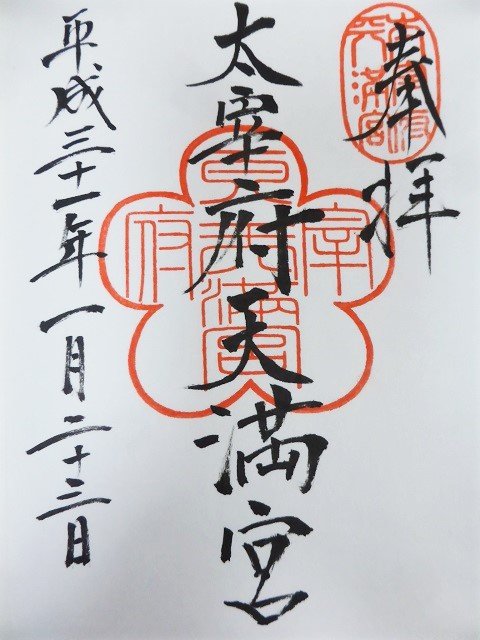 奉拝
太宰府天満宮
平成三十一年一月二十三日